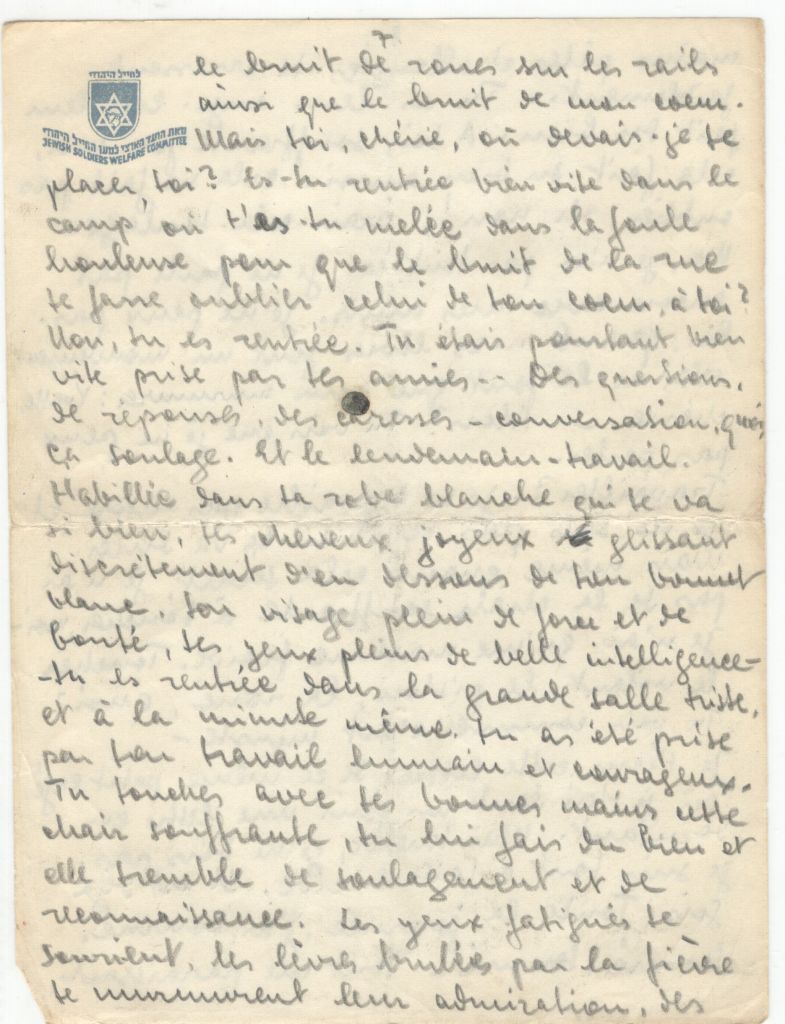 7
לחייל היהודי
מאת הועד הארצי למען החייל היהודי
JEWISH SOLDIERS WELFARE COMMITTEE
le bruit de roues sur les rails
ainsi que le bruit de mon coeur.
Mais toi, chérie, où devais-je te
placer, toi? Es-tu rentrée bien vite dans le
camp, où t'es-tu melée dans la foule
houleuse pour que le bruit de la rue
te fasse oublier celui de ton coeur, à toi?
Non, tu es rentrée. Tu étais pourtant bien
vite prise par tes amies -- Des questions,
de réponses, des caresses - conversation, quoi,
ça soulage. Et le lendemain - travail.
Habillée dans ta robe blanche qui te va
si bien, tes cheveux joyeux glissant
discrètement d'en dessous de ton bonnet
blanc, ton visage plein de force et de
bonté, tes yeux pleins de belle intelligence-
-tu es rentrée dans la grande salle triste,
et à la minute même, tu as été prise
par ton travail humain et courageux.
Tu touches avec tes bonnes mains cette
chair souffrante, tu lui fais du bien et
elle tremble de soulagement et de
reconnaissance. Les yeux fatigués te
sourient, les lèvres brulées par la fièvre
te murmurent leur admiration, des